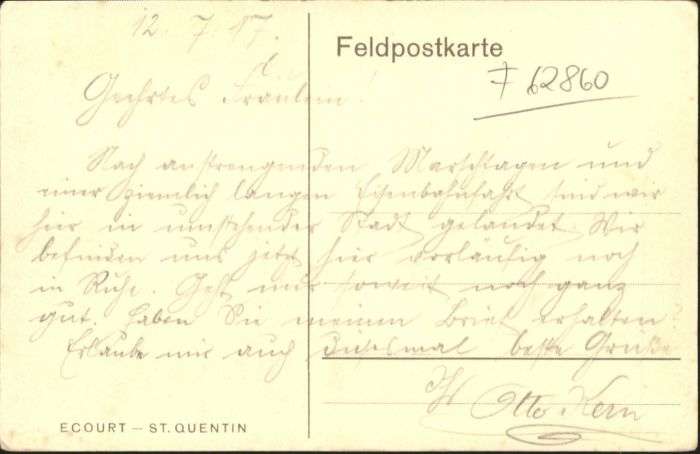 12. 7. 17.
Feldpostkarte
F 62860
Geehrtes Fräulein!
Nach anstrengenden Marschtagen und
einer ziemlich langen Eisenbahnfahrt sind wir
hier in umstehender Stadt gelandet. Wir
befinden uns jetzt hier vorläufig noch
in Ruhe. Geht mir soweit noch ganz
gut. Haben Sie meinen Brief erhalten?
Erlaube mir auch diesmal beste Grüße
Otto Kern
ECOURT — ST. QUENTIN